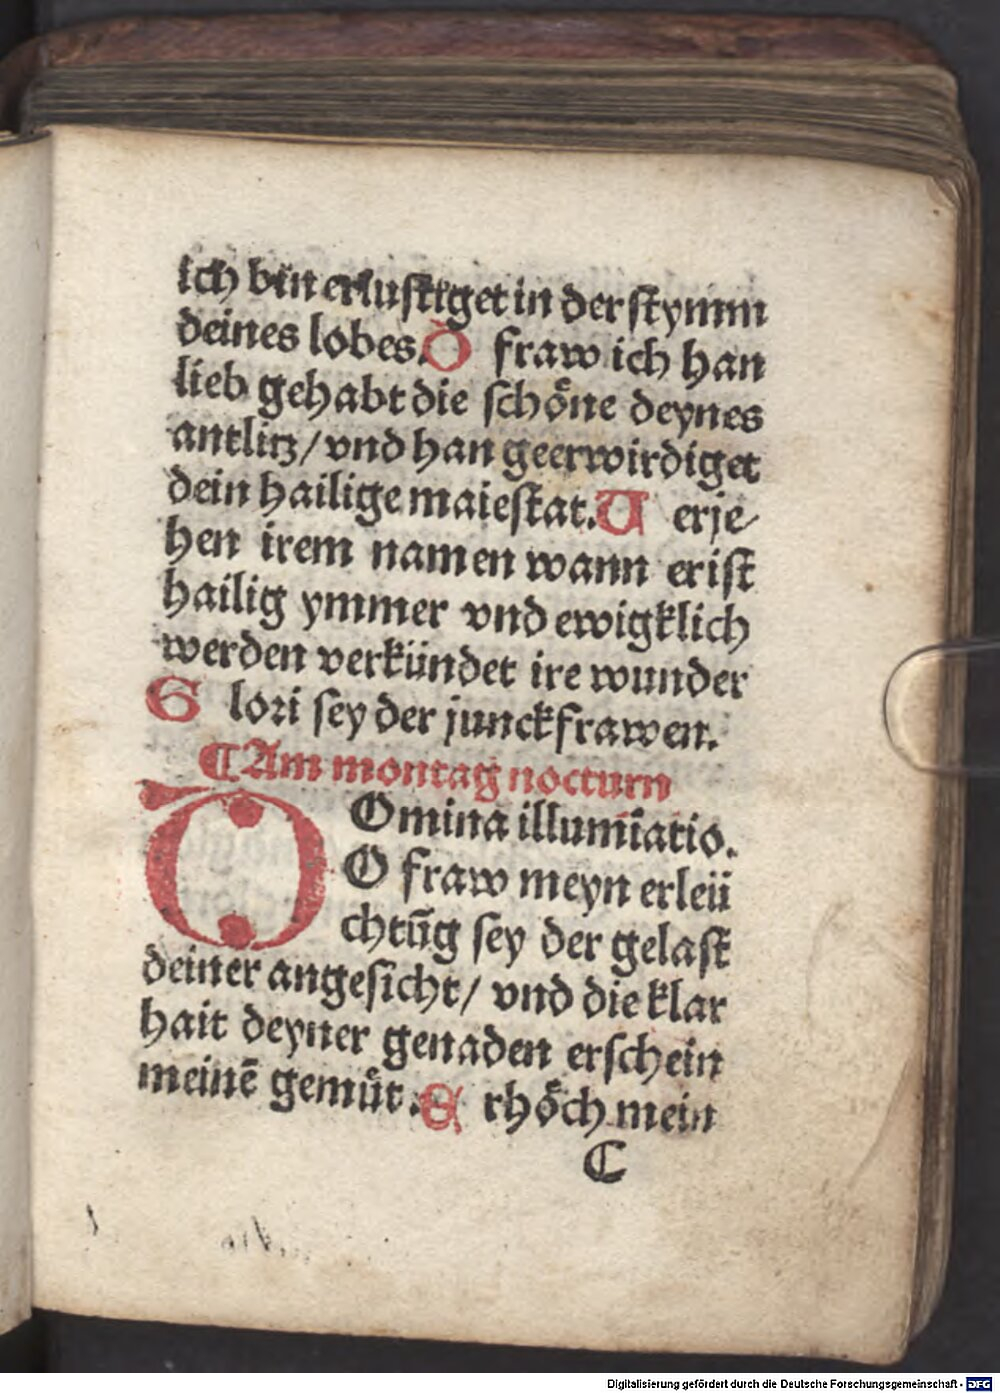 ich bin erlustiget in der stymm
deines lobes. O fraw ich han
lieb gehabt die schoͤne deynes
antlitz/ vnd han geerwirdiget
dein hailige maiestat. V erje⸗
hen irem namen wann er ist
hailig ymmer vnd ewigklich
werden verkündet ire wunder
G lori sey der junckfrawen.
¶ Am montag nocturn
DOmina illumīatio.
O fraw meyn erleü
chtūg sey der gelast
deiner angesicht/ vnd die klar
hait deyner genaden erschein
meinē gemuͤt. E rhoͤch mein
C
Digitalisierung gefördert durch die Deutsche Forschungsgemeinschaft - DFG